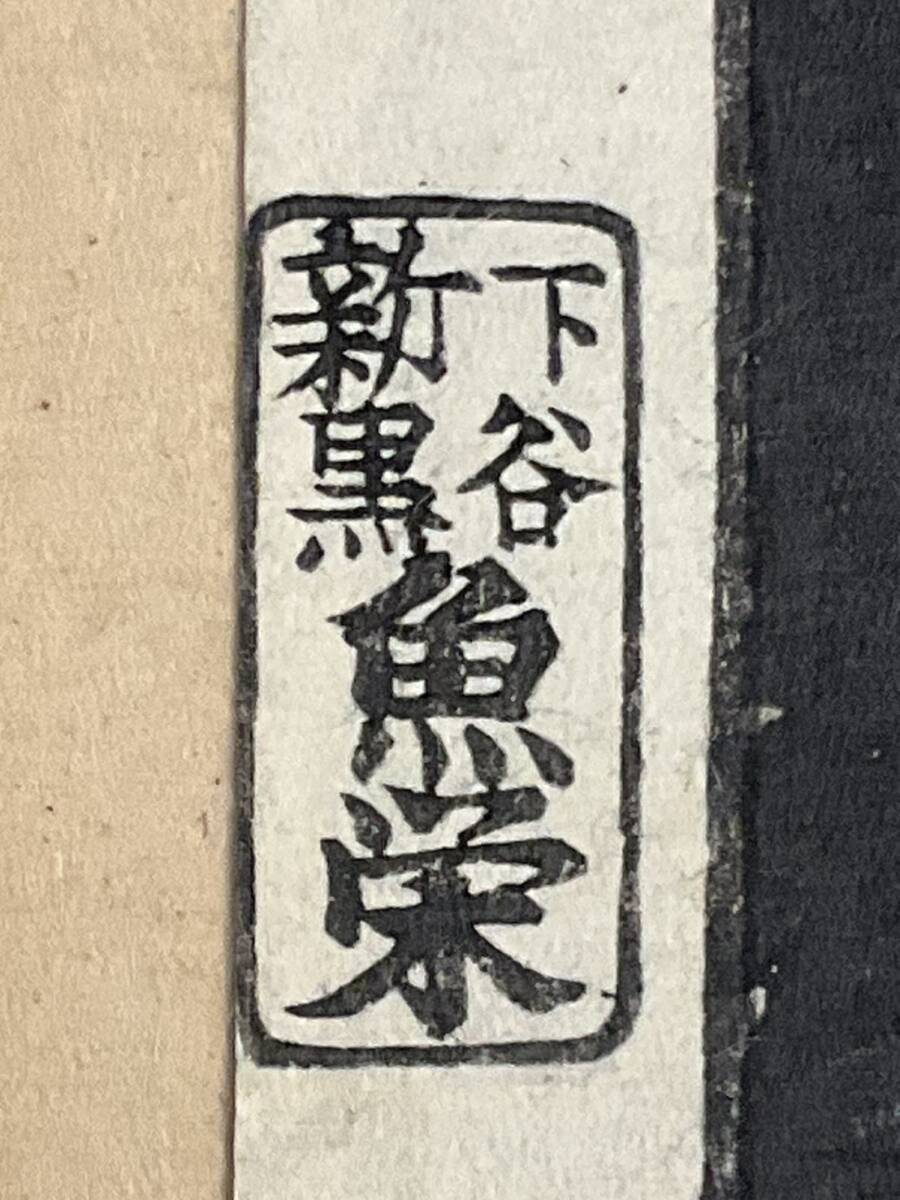 下谷
新黒
魚栄